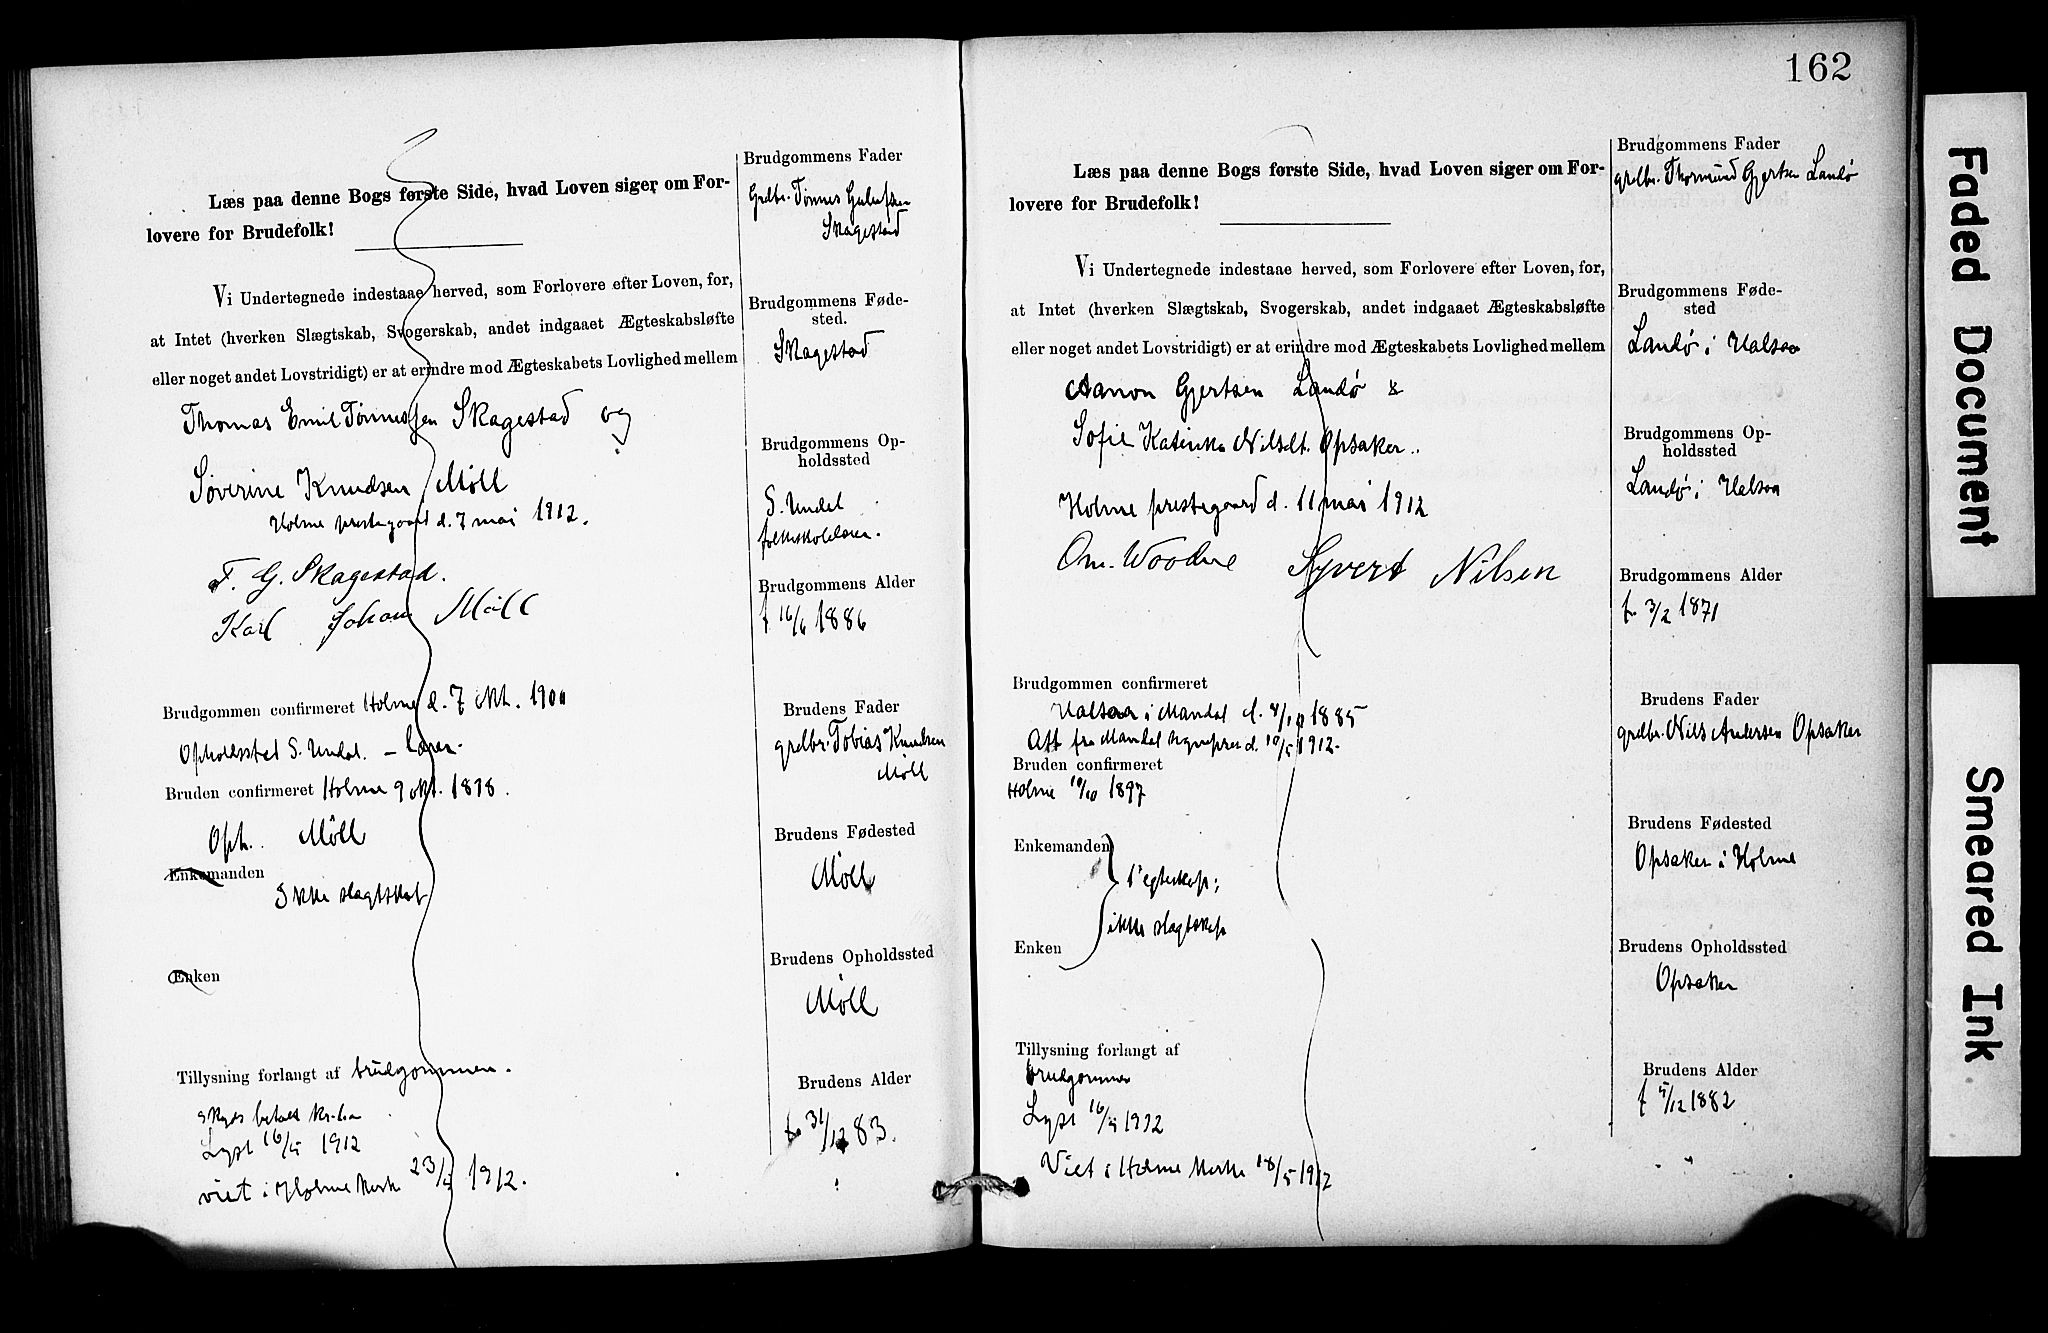 Læs paa denne Bogs første Side, hvad Loven siger om For-
lovere for Brudefolk!
Vi Undertegnede indestaae herved, som Forlovere efter Loven, for,
at Intet (hverken Slægtskab, Svogerskab, andet indgaaet Ægteskabsløfte
eller noget andet Lovstridigt) er at erindre mod Ægteskabets Lovlighed mellem
Thomas Emil Tønnessen Skagestad og
Søverine Knudsen Møll
Holme prestegaard d. 7 mai 1912.
T. G. Skagestad.
Karl Johan Møll
Brudgommen confirmeret Holme d. 7 okt. 1900
Opholdssted S. Undal. – lærer.
Bruden confirmeret Holme 9 okt. 1898.
Oph. Møll
Enkemanden
Ikke slagtskab
Enken
Tillysning forlangt af brudgommen.
Lyst 16/5 1912
viet i Holme kirke 23/5 1912.
Brudgommens Fader
Grdbr. Tønnes
Skagestad
Brudgommens Føde-
sted.
Skagestad
Brudgommens Op-
holdssted
S. Undal
folkeskolelærer.
Brudgommens Alder
f 16/6 1886
Brudens Fader
grdbr. Tobias Knudsen
Møll
Brudens Fødested
Møll
Brudens Opholdssted
Møll
Brudens Alder
f. 31/12 83.
162
Læs paa denne Bogs første Side, hvad Loven siger om For-
lovere for Brudefolk!
Vi Undertegnede indestaae herved, som Forlovere efter Loven, for,
at Intet (hverken Slægtskab, Svogerskab, andet indgaaet Ægteskabsløfte
eller noget andet Lovstridigt) er at erindre mod Ægteskabets Lovlighed mellem
Aanon Gjertsen Landø &
Sofie Katinka Nilsdt. Opsaker..
Holme prestegaard d. 11 mai 1912
Syvert Nilsen
Brudgommen confirmeret
Halsaa i Mandal d. 4/10 1885
Att fra Mandal sognepres d. 10/5 1912.
Bruden confirmeret
Holme 10/10 1897
Enkemanden
1' egteskap;
ikke slagtskap
Enken
Tillysning forlangt af
brudgommen
Lyst 16/5 1912
Viet i Holme kirke 18/5 1912
Brudgommens Fader
grdbr. Thormund Gjertsen Landø
Brudgommens Føde-
sted
Landø i Halsaa
Brudgommens Op-
holdssted
Landø i Halsaa
Brudgommens Alder
f. 3/2 1871
Brudens Fader
grdbr. Nils Andersen Opsaker
Brudens Fødested
Opsaker i Holme
Brudens Opholdssted
Opsaker
Brudens Alder
f 5/12 1882
Faded Document
Smeared Ink